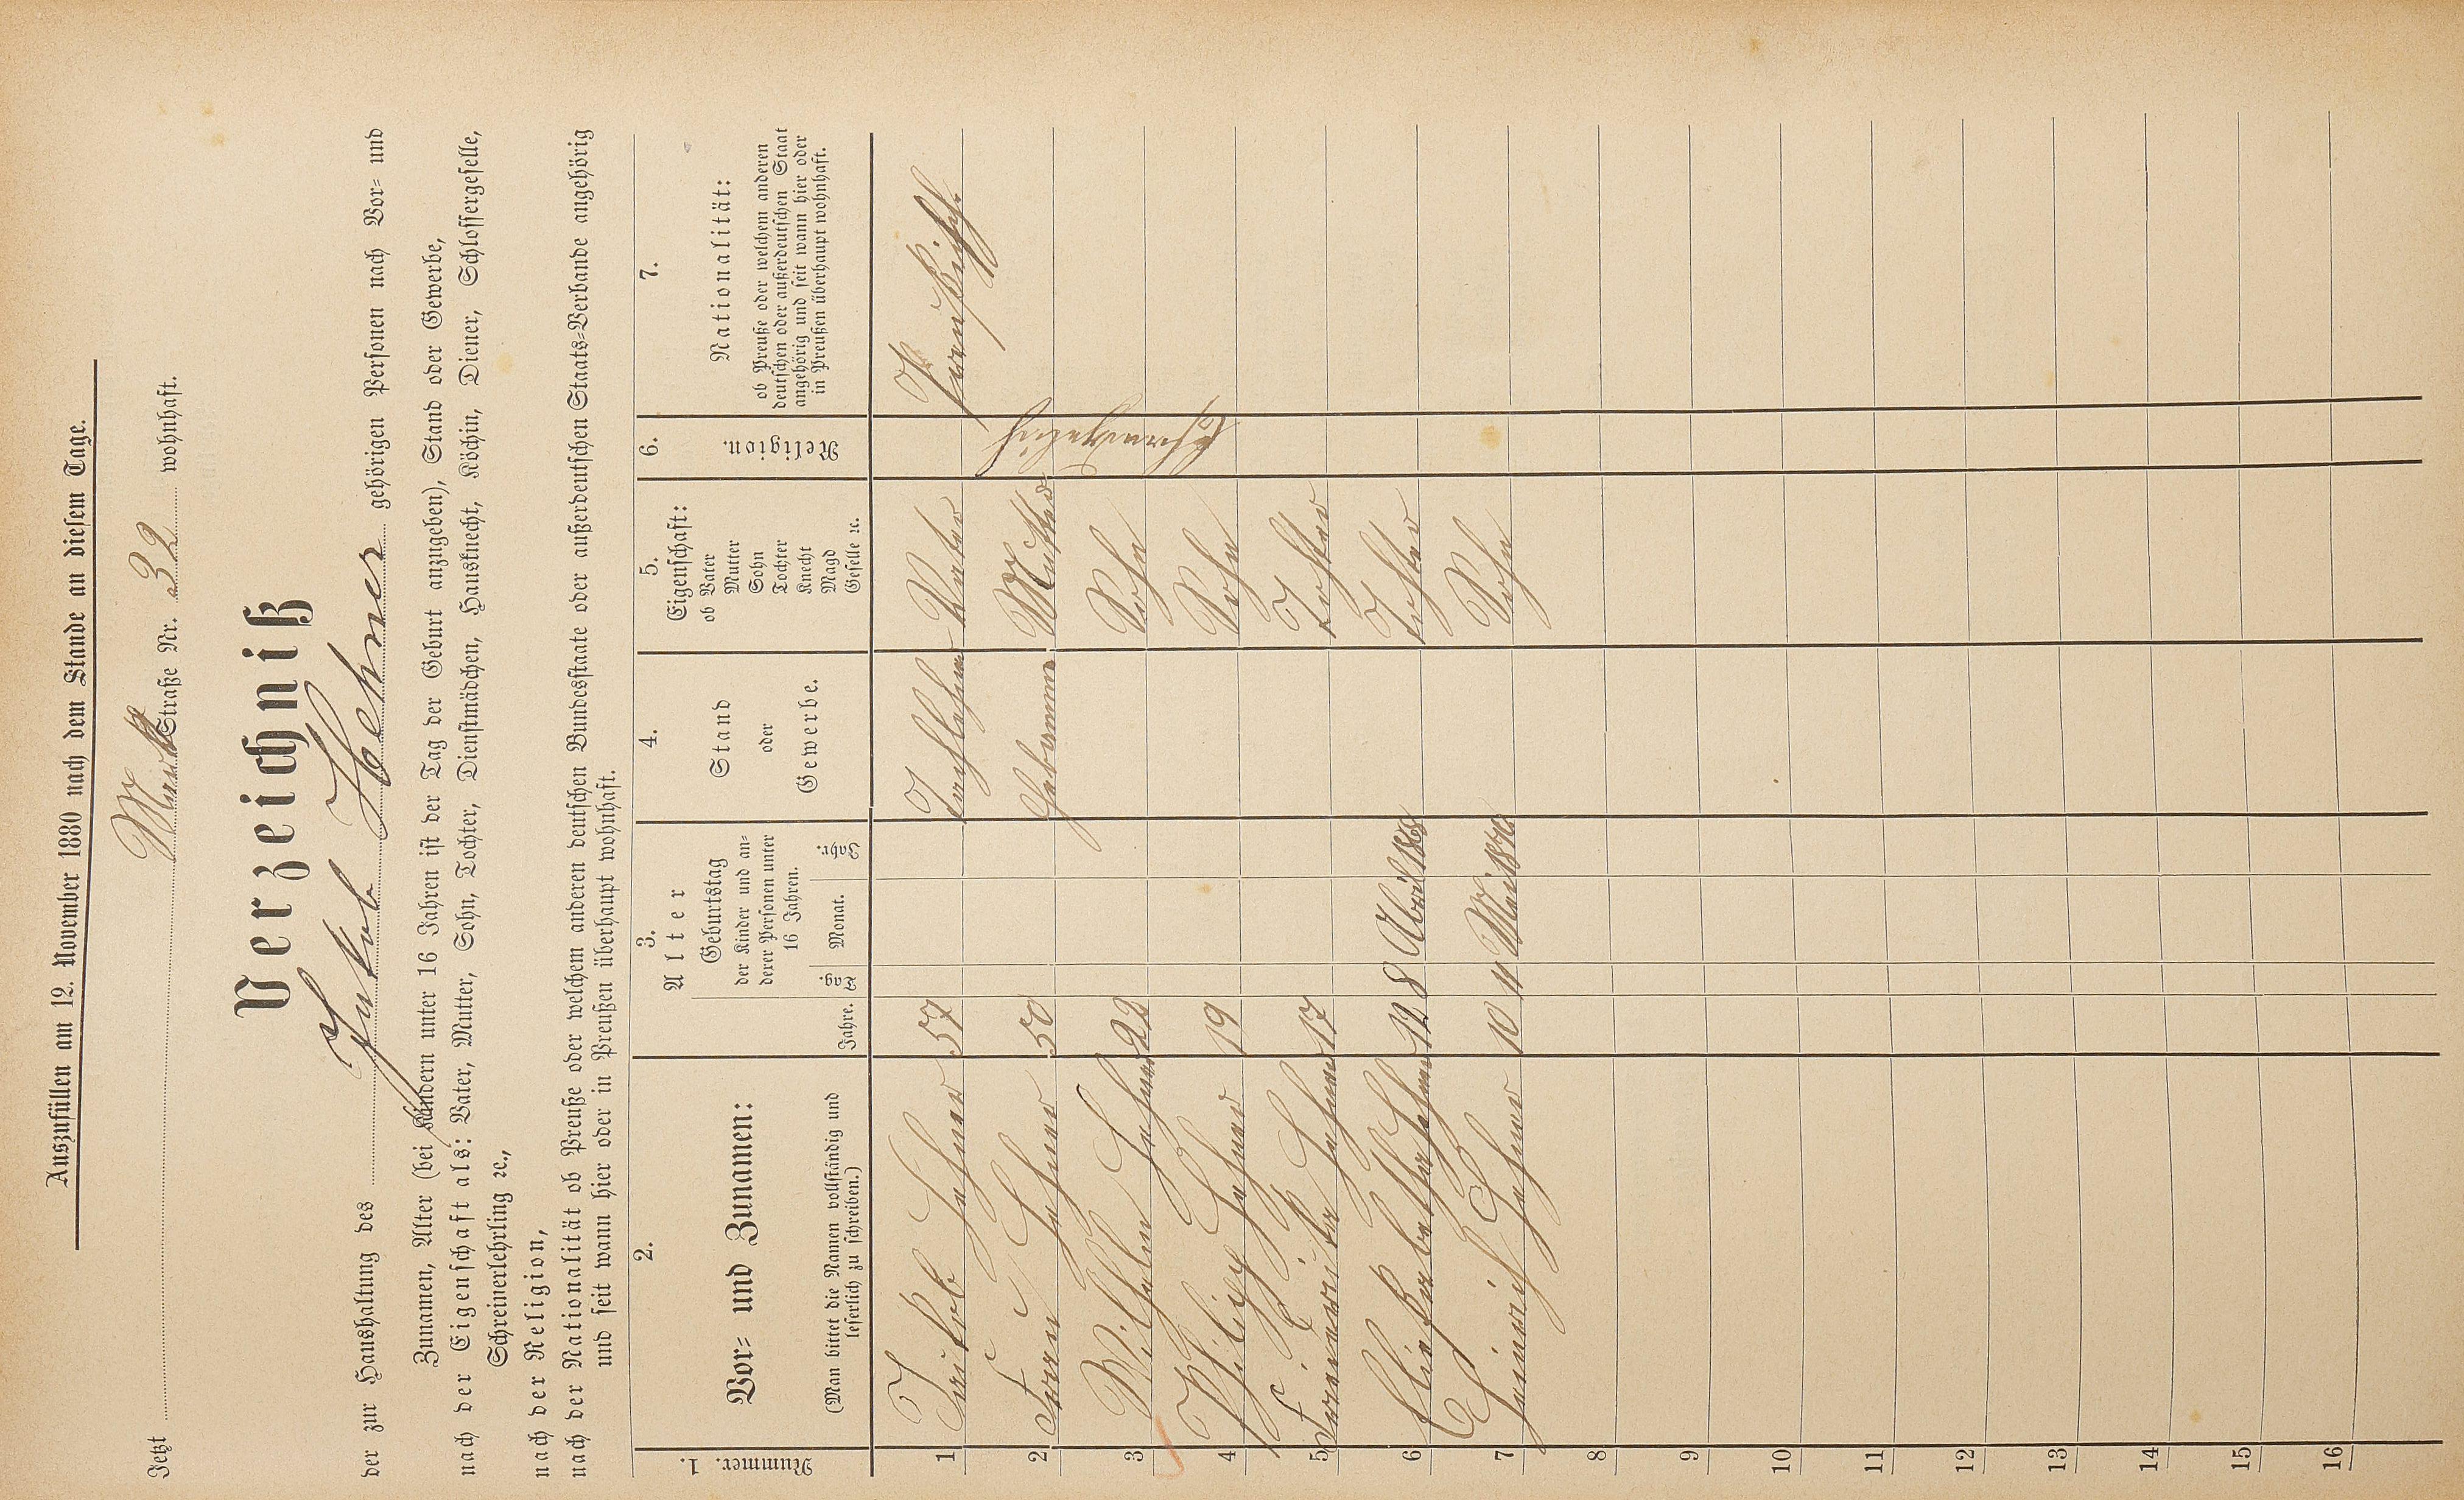 Auszufüllen am 12. November 1880 nach dem Stande an diesem Tage.
Jetzt Markt Straße Nr. 32 wohnhaft.
Verzeichniß
der zur Haushaltung des Jakob Hehner gehörigen Personen nach Vor- und
Zunamen, Alter (bei Kindern unter 16 Jahren ist der Tag der Geburt anzugeben), Stand oder Gewerbe,
nach der Eigenschaft als: Vater, Mutter, Sohn, Tochter, Dienstmädchen, Hausknecht, Köchin, Diener, Schlossergeselle,
Schreinerlehrling ꝛc.,
nach der Religion,
nach der Nationalität ob Preuße oder welchem anderen deutschen Bundesstaate oder außerdeutschen Staats-Verbande angehörig
und seit wann hier oder in Preußen überhaupt wohnhaft.
Nummer. 1.
2.
Vor- und Zunamen:
(Man bittet die Namen vollständig und
leserlich zu schreiben.)
3.
Alter
Jahre.
Geburtstag
der Kinder und an-
derer Personen unter
16 Jahren.
Tag. Monat. Jahr.
4.
Stand
oder
Gewerbe.
5.
Eigenschaft:
ob Vater
Mutter
Sohn
Tochter
Knecht
Magd
Geselle ꝛc.
6.
Religion.
7.
Nationalität:
ob Preuße oder welchem anderen
deutschen oder außerdeutschen Staat
angehörig und seit wann hier oder
in Preußen überhaupt wohnhaft.
1 Jakob Hehner 57 Vater Preußisch
2 Hehner 50 Hebamme Mutter Evangelisch
3 Wilhelm Hehner 22 Sohn
4 Philipp Hehner 19 Sohn
5 Hehner 17 Tochter
6 Hehner 12 8 April 1868 Tochter
7 Heinrich Hehner 10 11 Mai 1870 Sohn
8
9
10
11
12
13
14
15
16